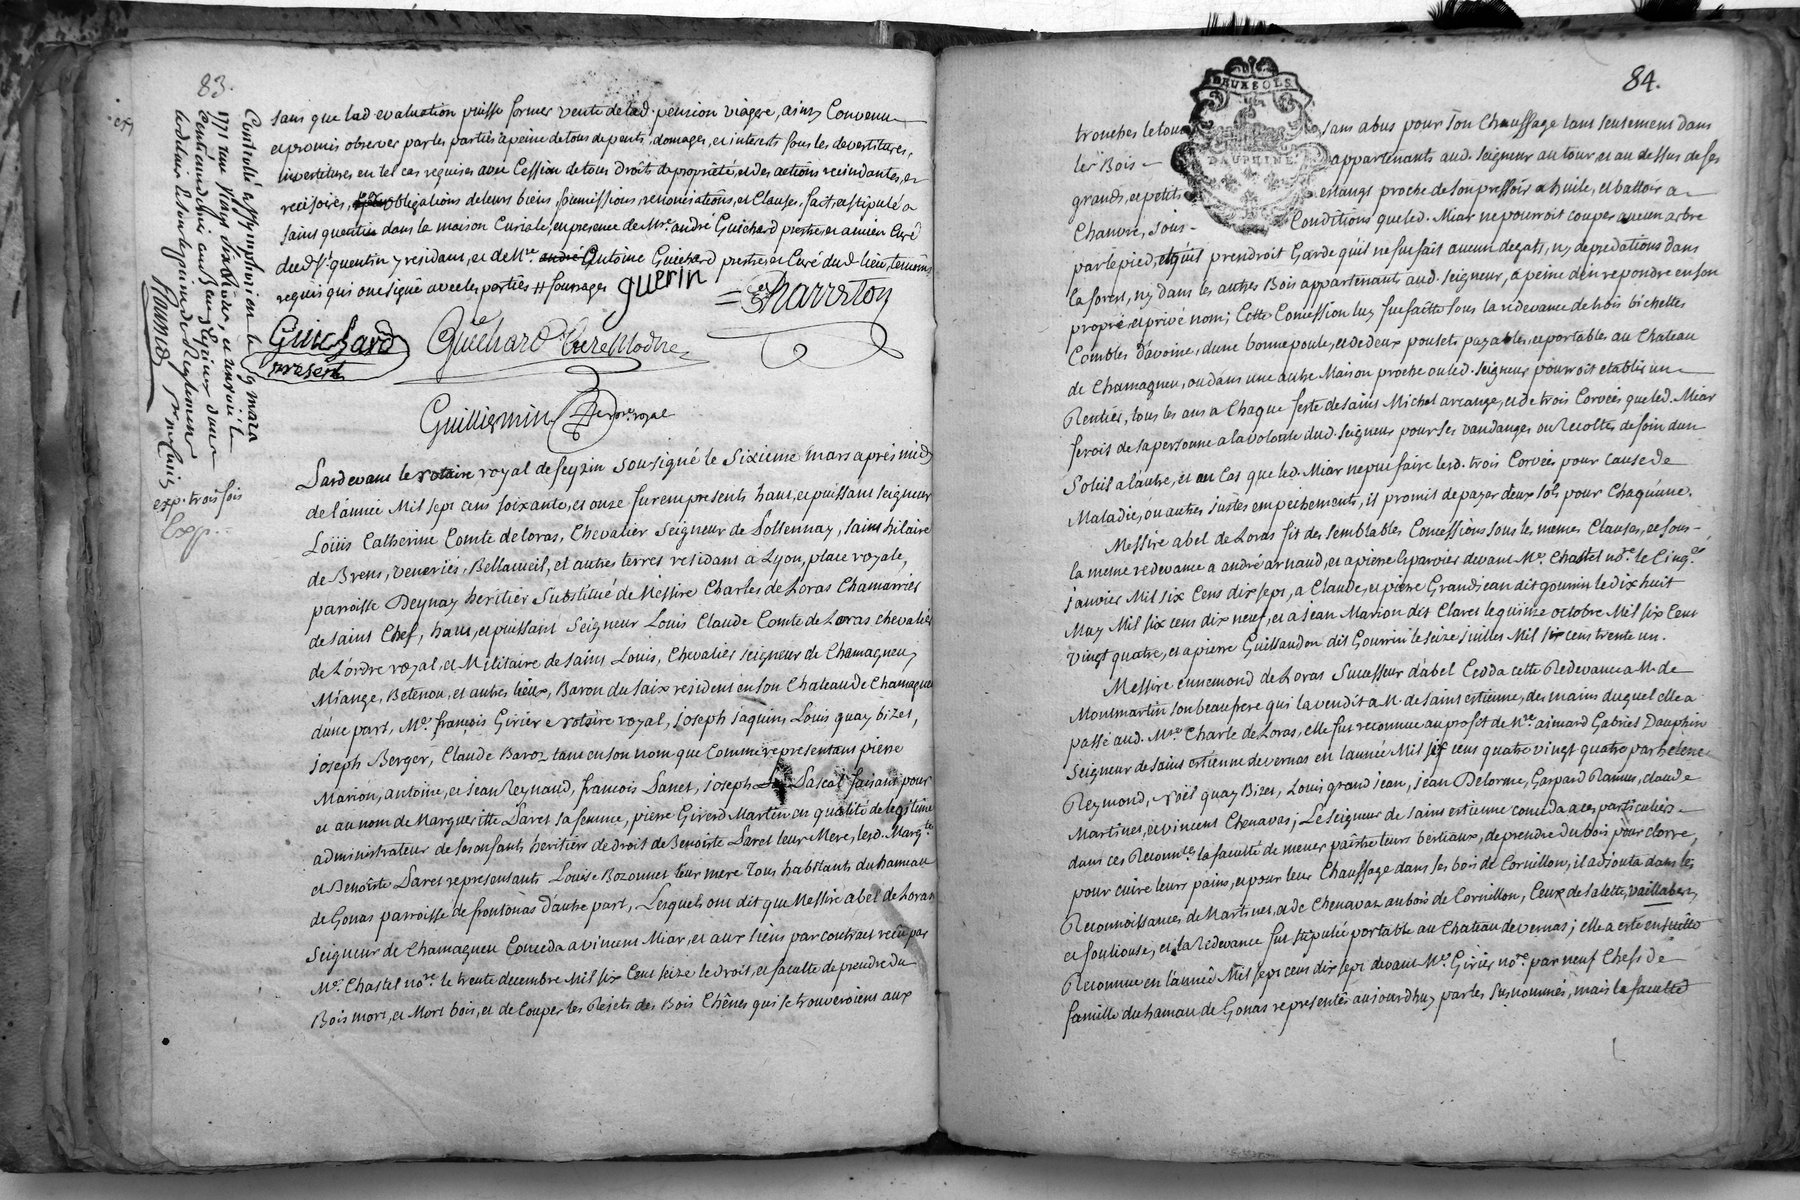 83.
sans que lad evaluation puisse former vente de lad. pension viagere, ainsy Convenu
et promis observer par les parties a peine de tous depents, domages, et interests sous les devertitures,
invertitures en tel cas requises avec Cession de tous droits de propriété, et des actions recindantes, et
recisoires, obligations de leurs biens, soumissions, renonciations, et Clauses, fait, et stipulé a
saint quentin dans la maison Curiale, en presence de Mre. andré Guichard prestre et ancien Curé
dud. St. quentin y residant, et de Mre. andré Antoine Guichard prestre et Curé dud. lieu, temoins
requis qui ont signé avec les parties
guerin
Charreton
Guichard
present
Guichard Curé Modne
Guilliermin no.re royal
Controllé a st symphorien le 19 mars
1771 reçu
Pardevant le notaire royal de feyzin soussigné le Sixieme mars après midy
de l'année Mil sept cens soixante, et onze furent presents haut, et puissant seigneur
Loüis Catherine Comte de loras, Chevalier Seigneur de Pollennay, saint hilaire
de Brens, veneriés, Bellacueil, et autres terres residant à Lyon, place royale,
parroisse Deynay heritier Substitué de Messire Charles de Loras Chamarrier
de saint Chef, haut, et puissant Seigneur Louis Claude Comte de Loras chevalier
de L'ordre royal, et Militaire de saint Louis, Chevalier seigneur de Chamagneu,
Miange, Betenou, et autres lieux, Baron du saix resident en son Chateau de Chamagneu
d'une part, Me. françois Girier notaire royal, joseph jaquin, Louis quay bizet,
joseph Berger, Claude Baroz tant en son nom que Comme representant pierre
Marion, antoine, et jean Reynaud, francois Paret, joseph Pascal faisant pour
et au nom de Marguerite Paret sa femme, pierre Girerd Martin en qualité de legitime
administrateur de ses enfants heritiers de droit de Benoite Paret leur Mere, lesd. Marg.te
et Benoîte Paret representants Louise Bozonnet leur mere Tous habitants du hameau
de Gonas parroisse de frontonas d'autre part, Lesquels ont dit que Messire abel de Loras
Seigneur de Chamagneu Conceda a vincent Miar, et aux siens par contract reçu par
Me. Chastel no.re le trente decembre Mil six Cent seize le droit, et faculté de prendre du
Bois mort, et Mort bois, et de Couper les Rejets des Bois Chênes qui se trouveroient aux
exp. trois fois
84.
DEUX SOLS
DAUPHINE
tronches le tout sans abus pour son Chauffage tant seulement dans
les Bois appartenants aud. seigneur au tour, et au dessus de ses
grands, et petits etangs proche de son pressois a huile, et battoir a
Chanvre, sous Conditions que led. Miar ne pourroit couper aucun arbre
par le pied, et qu'il prendroit Garde qu'il ne fut fait aucun degats, ny depredations dans
la forest, ny dans les autres Bois appartenants aud. seigneur, a peine d'en repondre en son
propre et privé nom; Cette Concession luy fut faitte sous la redevance de trois bichettes
Combles d'avoine, d'une bonne poule, et de deux poulets payables, et portables au Chateau
de Chamagneu, ou dans une autre Maison proche ou led. seigneur pourroit etablir un
Rentier, tous les ans a Chaque feste de saint Michel arcange, et de trois Corvées que led. Miar
feroit de sa personne a la volonté dud. seigneur pour ses vandanges ou Recoltes de foin d'un
Soleil a l'autre, et au Cas que led. Miar ne put faire lesd. trois Corvées pour cause de
Maladie, ou autres justes empechements, il promit de payer deux sols pour Chaqu'une.
Messire abel de Loras fit des semblables Concessions sous les memes Clauses, et sous
la meme redevance a andré arnaud, et a pierre Eparvier devant Me. Chastel no.re le Cinq.
janvier Mil six Cens dix sept, a Claude, et pierre Grandjean dit gourrin le dix huit
May Mil six cens dix neuf, et a jean Marion dit Claret le quinze octobre Mil six Cent
vingt quatre, et a pierre Guillaudon dit Gourrin le seize juillet Mil six cens trente un.
Messire ennemond de Loras Successeur d'abel Cedda cette Redevance a M. de
Montmartin son beaufrere qui la vendit a M. de saint estienne, des mains duquel elle a
passé aud. Mre Charle de Loras, elle fut reconnue au profit de Mre. aimard Gabriel Dauphin
Seigneur de saint estienne de vernas en l'année Mil six cens quatre vingt quatre par helene
Reymond, Noël quay Bizet, Louis grand jean, jean Delorme, Gaspard Rannus, claude
Martinet, et vincent Chenavas; Le Seigneur de saint estienne conceda a ces particuliers
dans ces Reconn.ces la faculté de mener paître leurs bestiaux, de prendre du bois pour clorre,
pour cuire leurs pains, et pour leur Chauffage dans les bois de Cornillon, il adjouta dans les
Reconnoissances de Martinet, et de Chenavaz au bois de Cornillon, Ceux de salette, vaillabert,
et fouliouse, et la redevance fut stipulée portable au Chateau de vernas; elle a esté ensuitte
Reconnue en l'année Mil sept cens dix sept devant Me. Girier no.re par neuf Chefs de
famille du hamau de Gonas representés aujourdhuy par les susnommés, mais la faculté